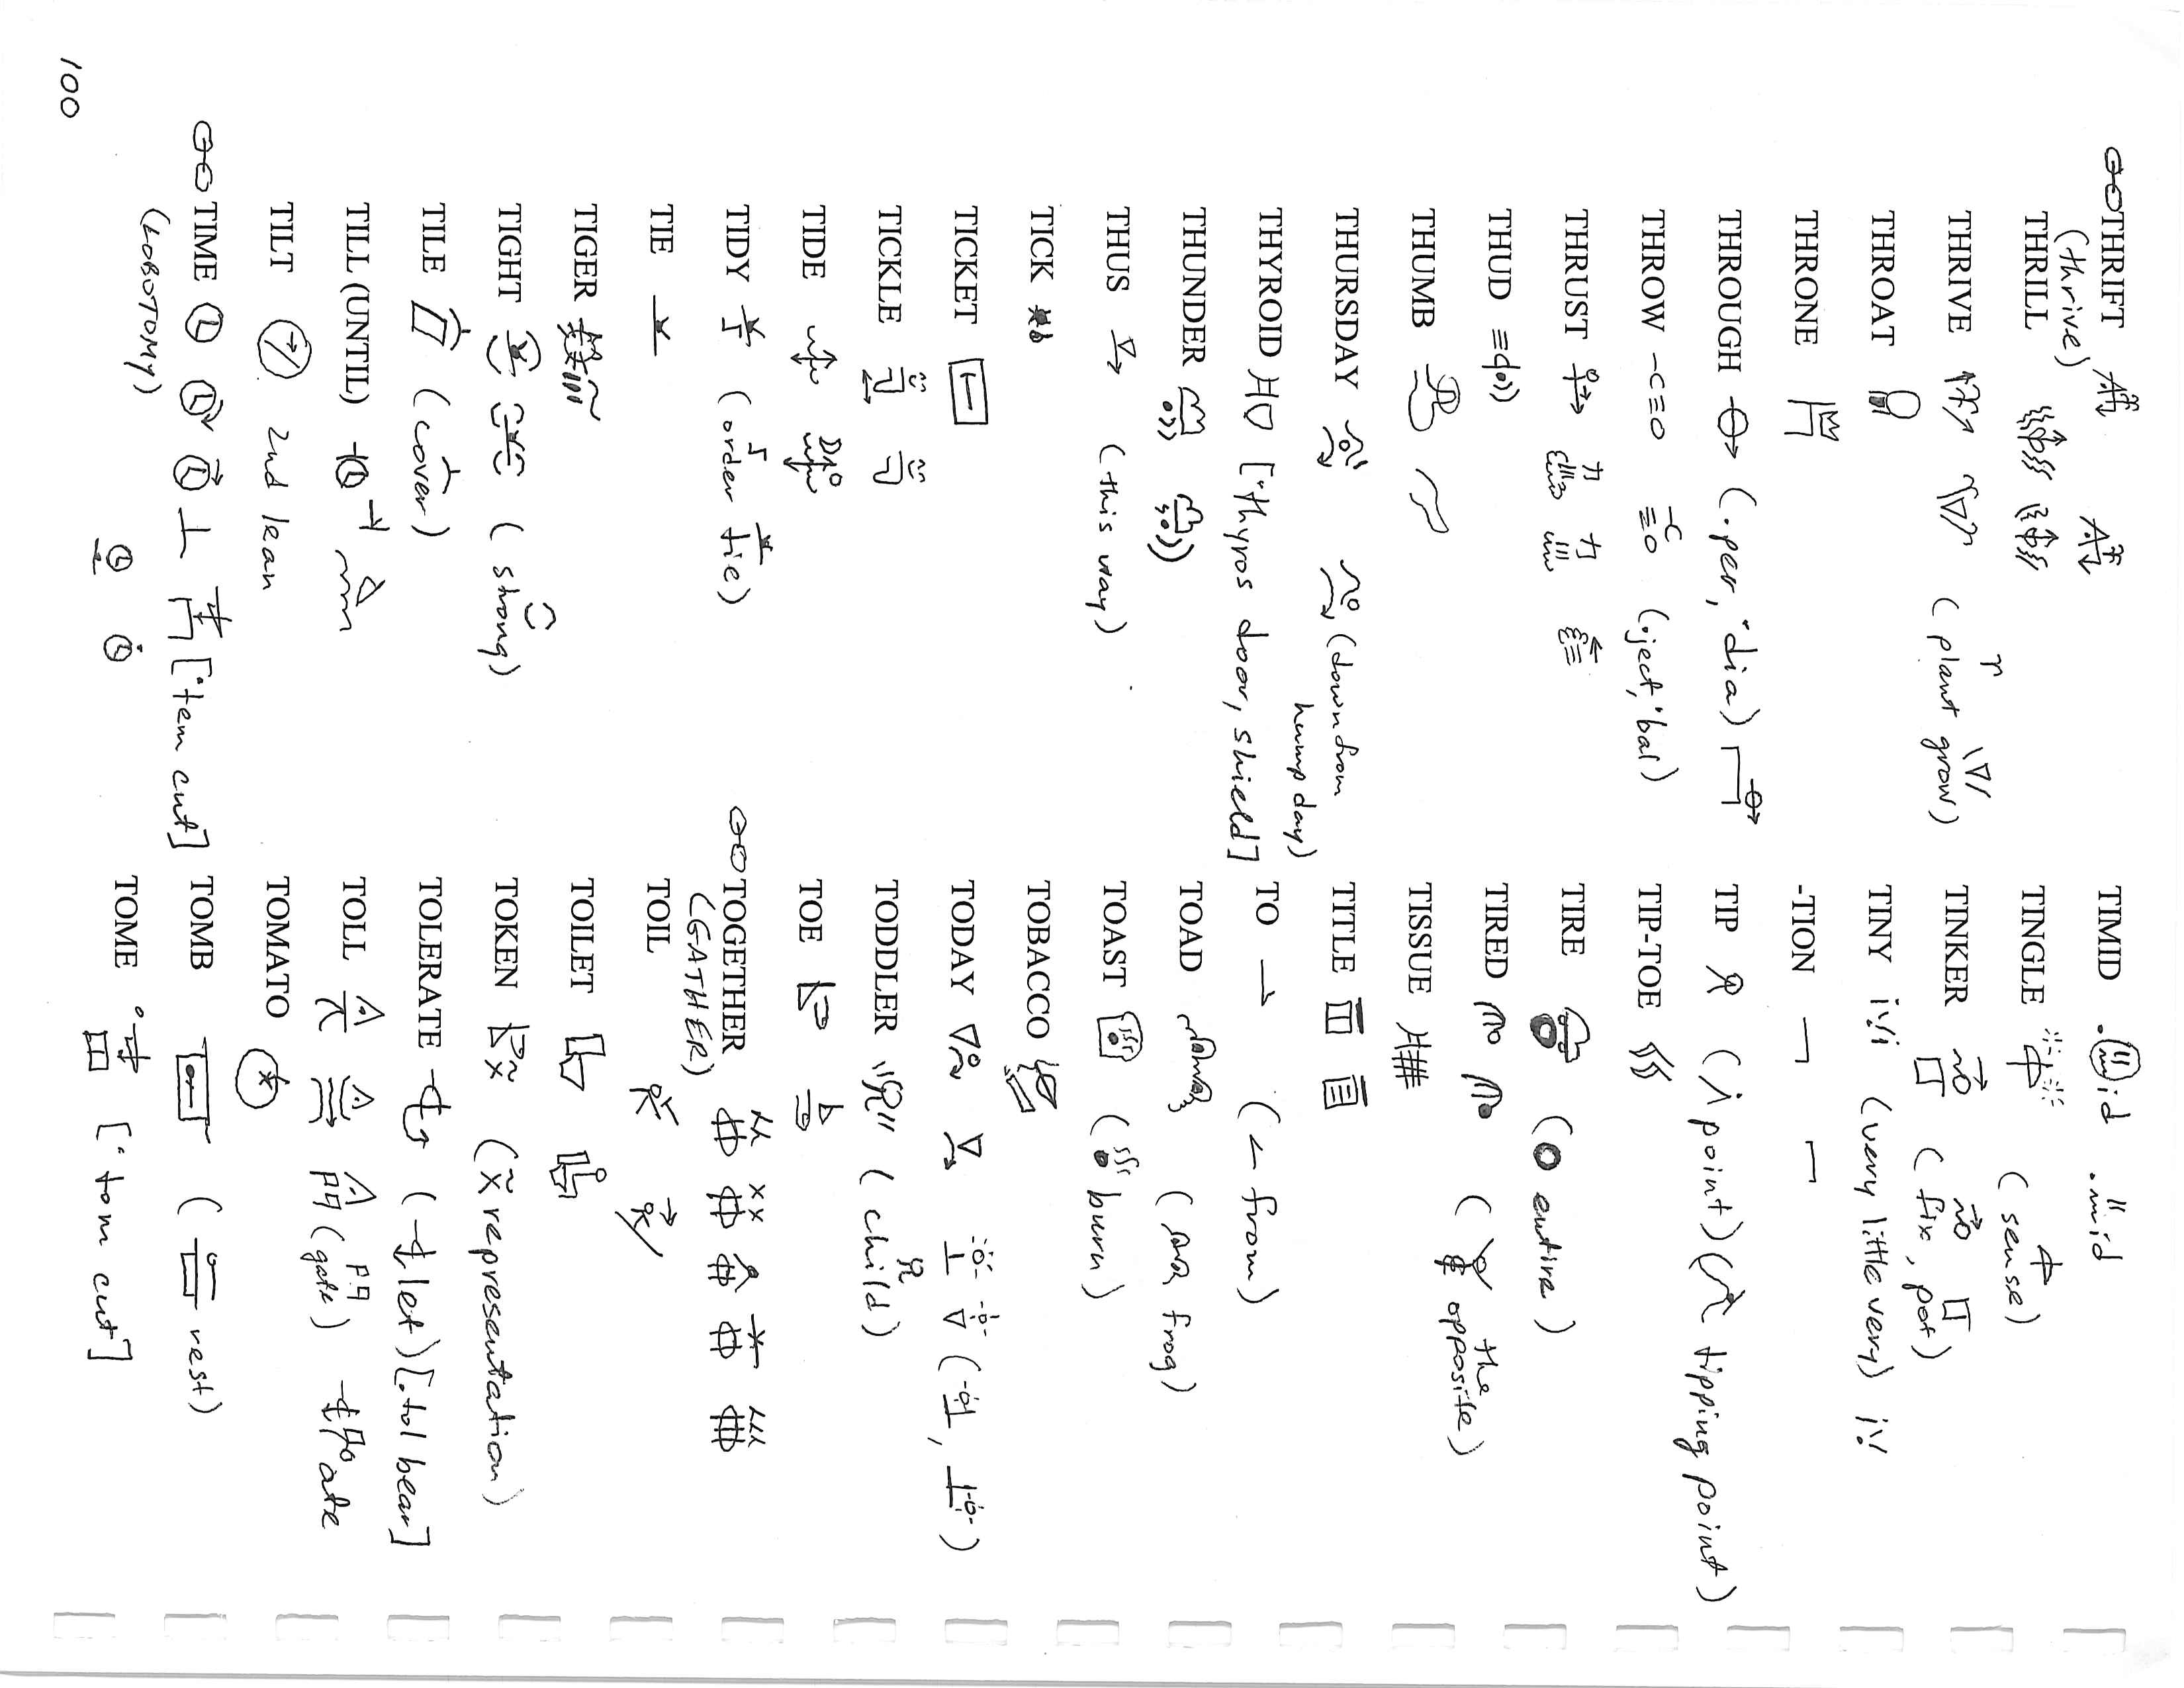 THRIFT
(thrive)
THRILL
THRIVE (plant grow)
THROAT
THRONE
THROUGH (.per, ¨dia)
THROW (.ject, ¨bal)
THRUST
THUD
THUMB
THURSDAY (down from
hump day)
THYROID [¨thyros door, shield]
THUNDER
THUS (this way)
TICK
TICKET
TICKLE
TIDE
TIDY (order tie)
TIE
TIGER
TIGHT (strong)
TILE (cover)
TILL (UNTIL)
TILT 2nd lean
TIME [¨tem cut]
(LOBOTOMY)
TIMID .id .mid
TINGLE (sense)
TINKER (fix, pot)
TINY (very little very)
-TION
TIP (point) (tipping point)
TIP-TOE
TIRE (entire)
TIRED (the
opposite)
TISSUE
TITLE
TO → (← from)
TOAD (frog)
TOAST (burn)
TOBACCO
TODAY
TODDLER (child)
TOE
TOGETHER
(GATHER)
TOIL
TOILET
TOKEN (representation)
TOLERATE (let) [.tol bear]
TOLL (gate) ate
TOMATO
TOMB (rest)
TOME [¨tom cut]
100